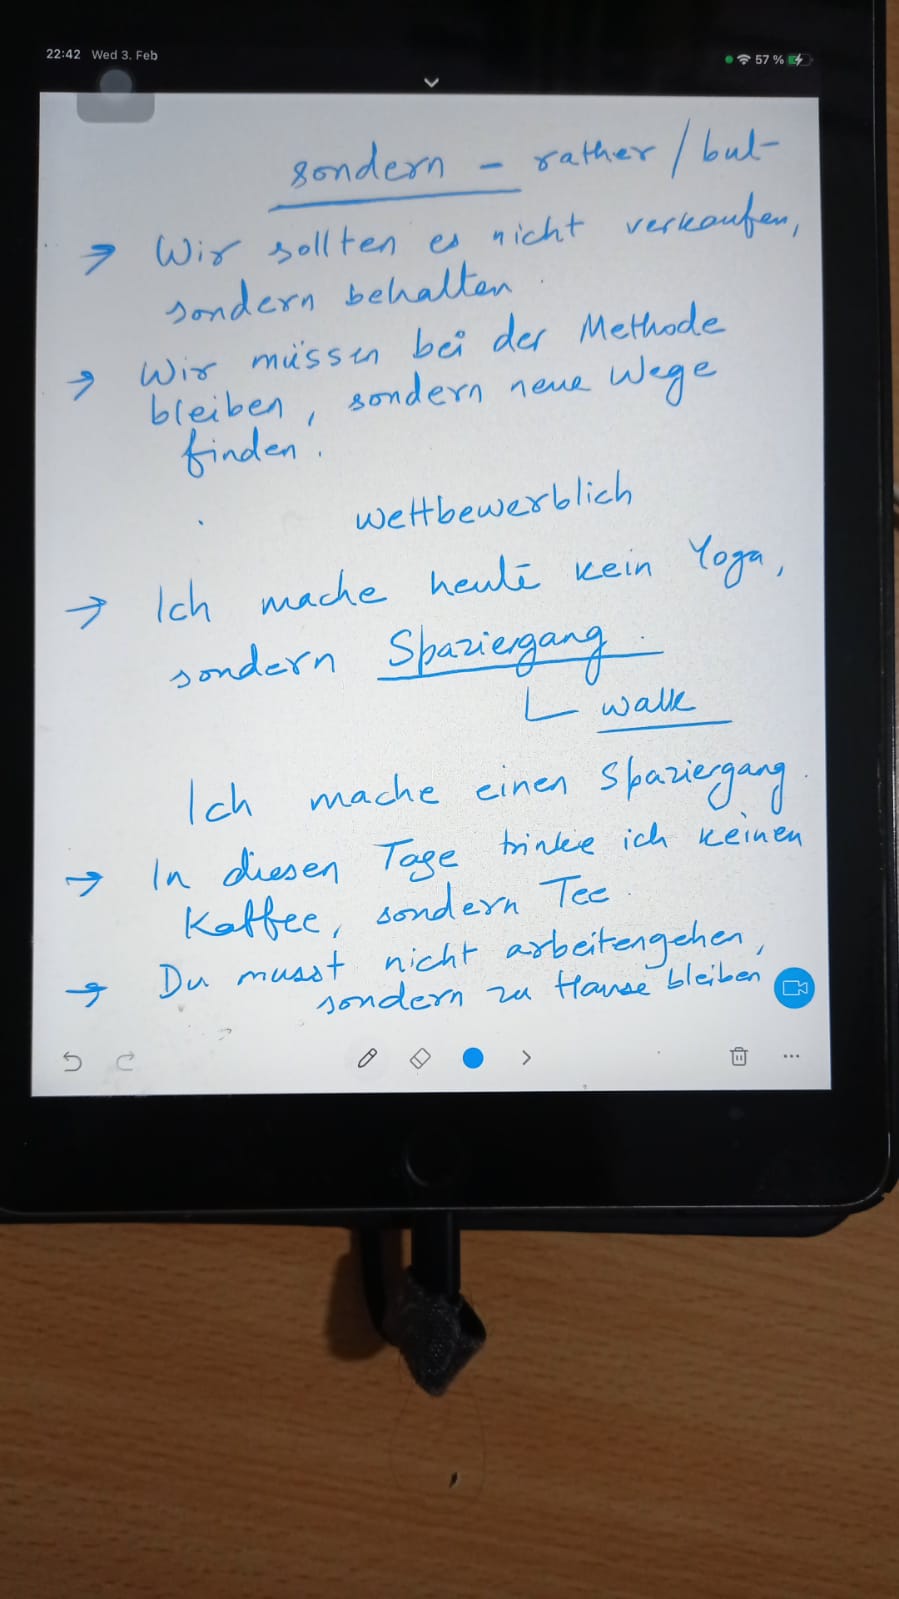 22:42 Wed 3. Feb
57 %
sondern - rather / but
→ Wir sollten es nicht verkaufen,
sondern behalten.
→ Wir müssen bei der Methode
bleiben, sondern neue Wege
finden.
wettbewerblich
→ Ich mache heute kein Yoga,
sondern Spaziergang.
walk
Ich mache einen Spaziergang.
→ In diesen Tage trinke ich keinen
Kaffee, sondern Tee.
→ Du musst nicht arbeitengehen,
sondern zu Hause bleiben